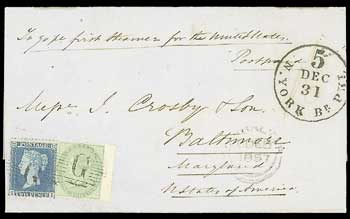 To go per first steamer for the United States.
Postpaid
N. YORK BR. PKT.
5
DEC
31
Messrs. J. Crosby & Son.
Baltimore
Maryland
U States of America.
1857
POSTAGE
G
TWO PENCE